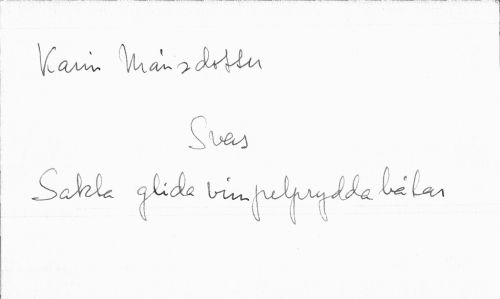 Karin Månsdotter
Svens
Sakta glida vimpelprydda båtar